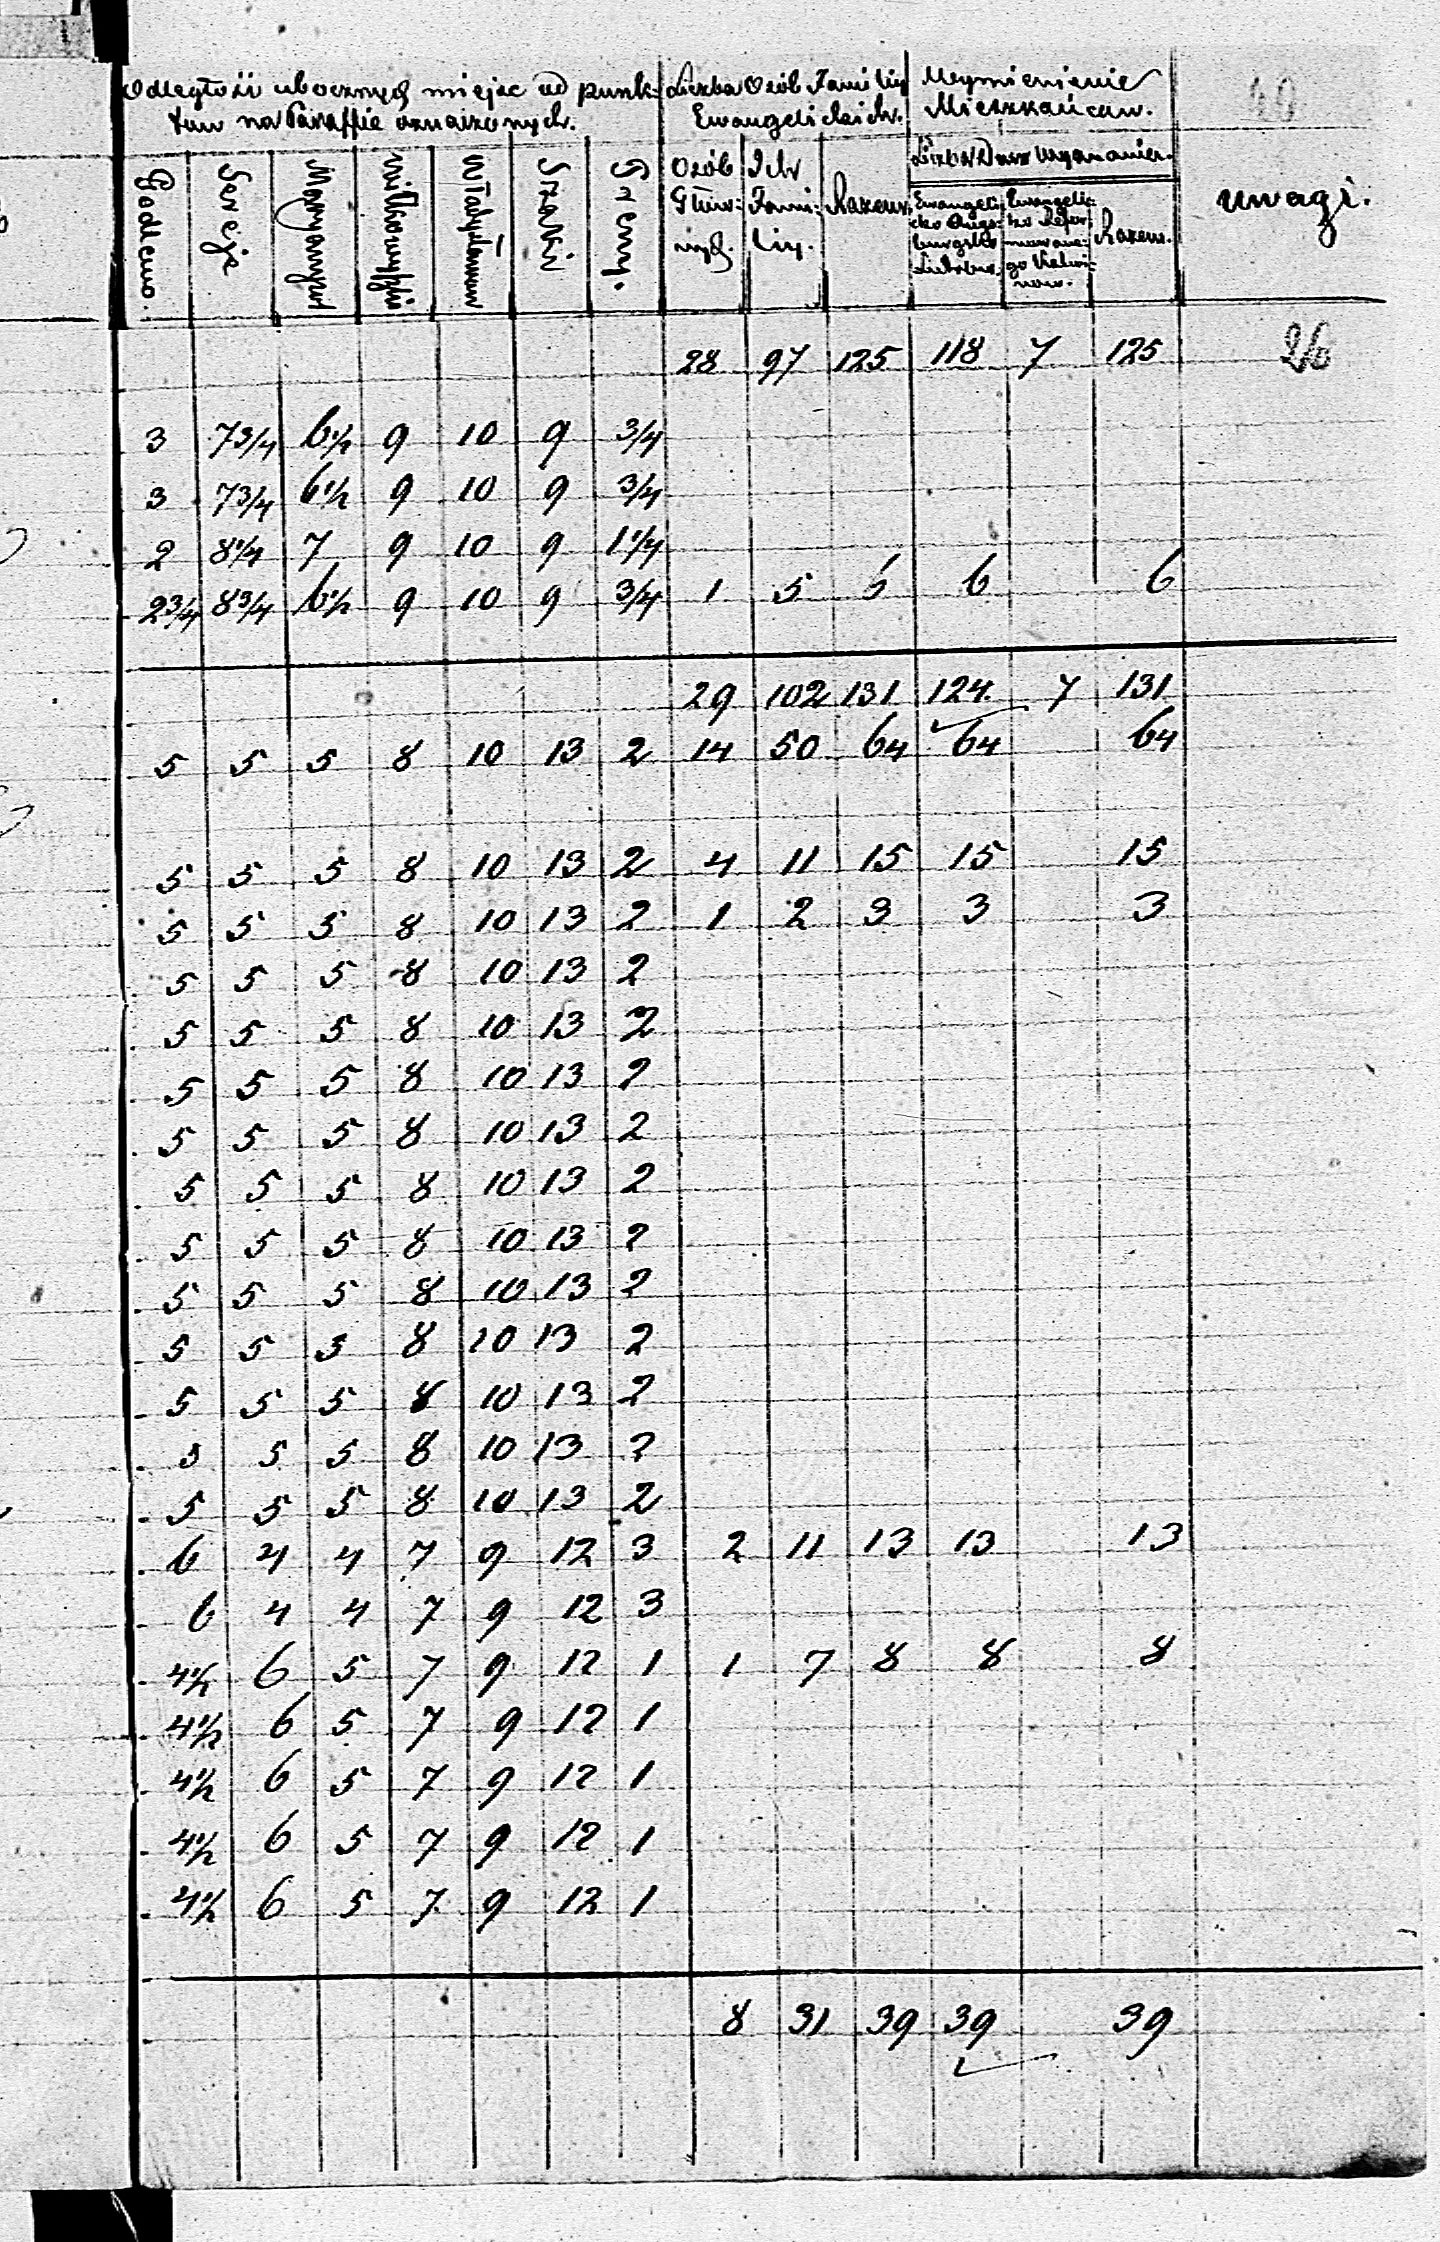 Odległość ubocznych miejsc od punk-
tów na Paraffie oznaczonych.
Liczba Osób Familiy
Ewangelickich.
Wymienienie
Mieszkańców.
Liczba Dusz Wyznania.
Godlewo.
Sereje
Maryampol
Wiłkowyszki
Władysławow
Szaki
Szemy.
Osób
Głów:
nych.
Ich
Fami:
liy.
Razem.
Razem.
uwagi.
28 97 125 118 7 125
26
3 7 3/4 6 1/2 9 10 9 3/4
3 7 3/4 6 1/2 9 10 9 3/4
2 8 1/4 7 9 10 9 1 1/4
2 3/4 8 3/4 6 1/2 9 10 9 3/4 1 5 6 6 6
29 102 131 124 7 131
5 5 5 8 10 13 2 14 50 64 64 64
5 5 5 8 10 13 2 4 11 15 15 15
5 5 5 8 10 13 2 1 2 3 3 3
5 5 5 8 10 13 2
5 5 5 8 10 13 2
5 5 5 8 10 13 2
5 5 5 8 10 13 2
5 5 5 8 10 13 2
5 5 5 8 10 13 2
5 5 5 8 10 13 2
5 5 5 8 10 13 2
5 5 5 8 10 13 2
5 5 5 8 10 13 2
5 5 5 8 10 13 2
6 4 4 7 9 12 3 2 11 13 13 13
6 4 4 7 9 12 3
4 1/2 6 5 7 9 12 1 1 7 8 8 8
4 1/2 6 5 7 9 12 1
4 1/2 6 5 7 9 12 1
4 1/2 6 5 7 9 12 1
4 1/2 6 5 7 9 12 1
8 31 39 39 39